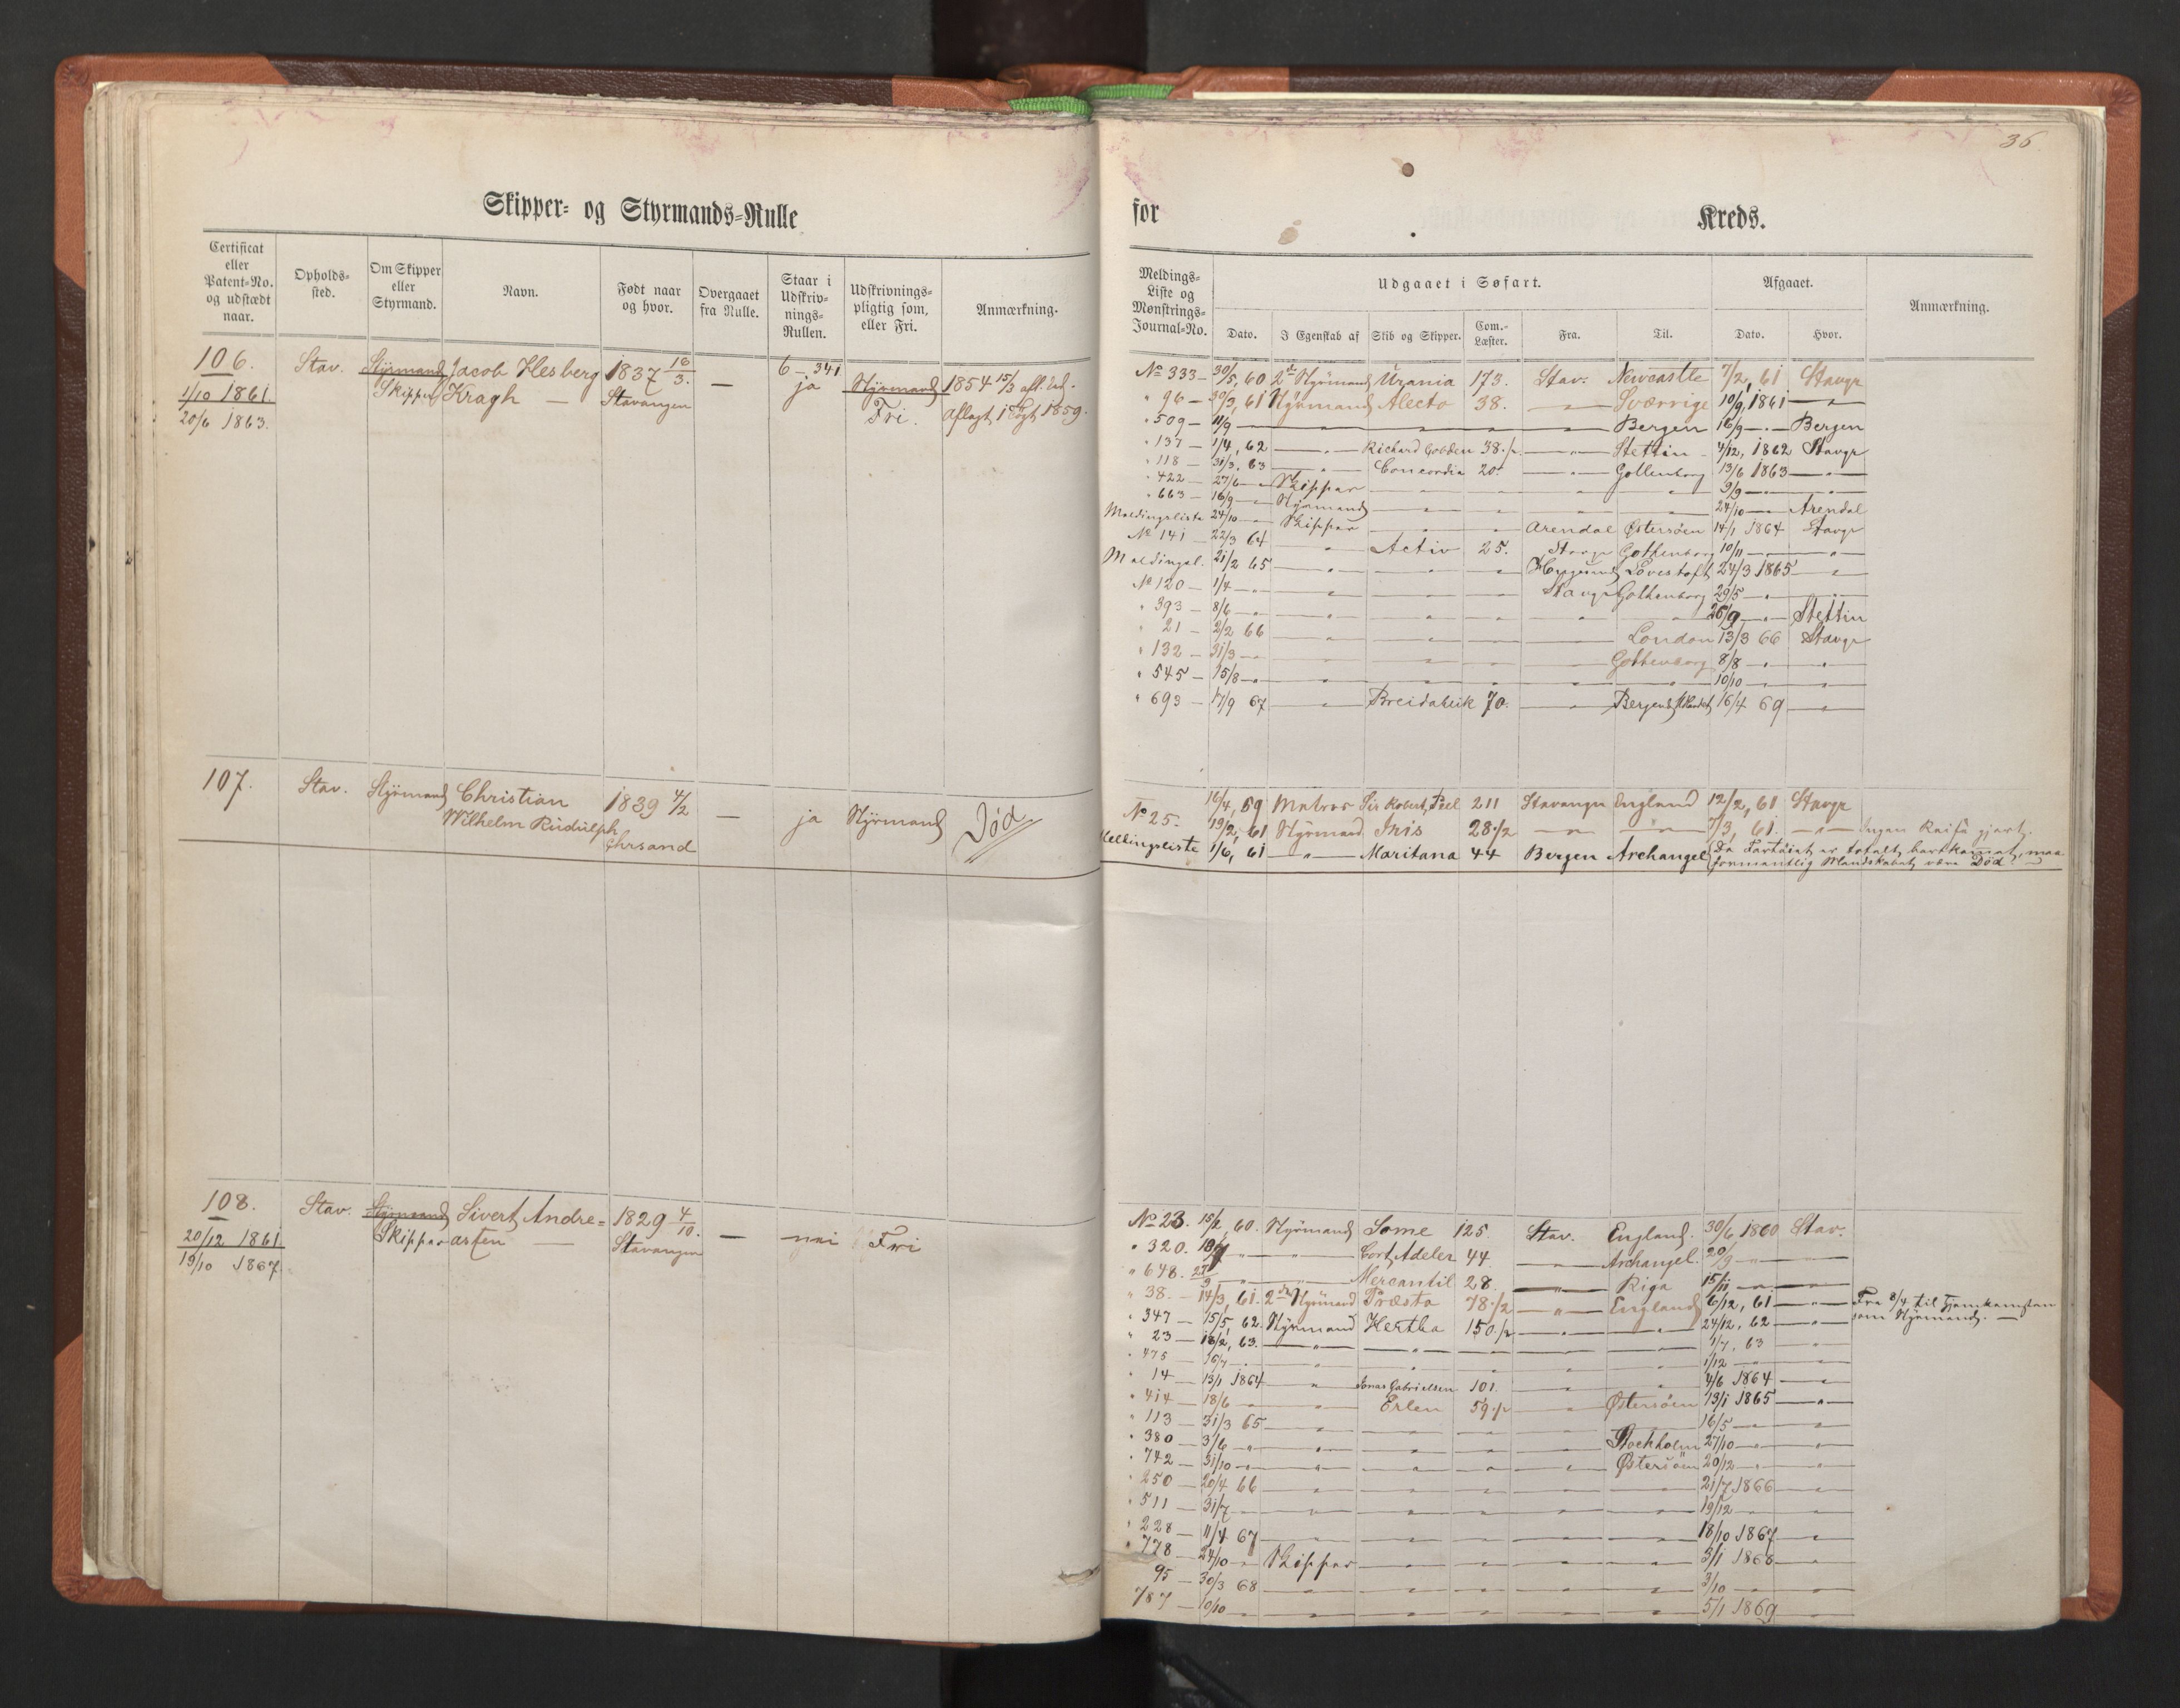 Skipper- og Styrmands-Rulle
Certificat eller Patent-No. og udstædt naar.
Opholds-sted.
Om Skipper eller Styrmand.
Navn.
Født naar og hvor.
Overgaaet fra Rulle.
Staar i Udskriv-nings-Rullen.
Udskrivnings-pligtig som, eller Fri.
Anmærkning.
106. Stav. Styrmand Jacob Hesberg 1837 16/3. — 6 – 341 Styrmand 1854 15/3
1/10 1861. Skipper Kragh — Stavanger ja Fri. aflagt 1 Togt 1859.
20/6 1863.
107. Stav. Styrmand Christian 1839 4/2 — ja Styrmand Død
Wilhelm Rudulph Chrsand
108. Stav. Styrmand Sivert Andre= 1829 4/10. — nei Fri
20/12 1861 Skipper asen — Stavanger
19/10 1867.
36.
for Kreds.
Meldings-Liste og Mønstrings-Journal-No.
Udgaaet i Søfart.
Afgaaet.
Anmærkning.
Dato. I Egenskab af Skib og Skipper. Com.-Læster. Fra. Til. Dato. Hvor.
No 333 – 30/5, 60 2den Styrmand Urania 173. Stav. Newcastle 7/2, 61 Stavgr
" 96 – 30/3, 61 Styrmand Alecto 38. — " — Sverrige 10/9, 1861 — " —
" 509 – 11/9 — — — — — Bergen 16/9 — " — Bergen
" 137 – 1/4, 62 — " — Richard Cobden 38 1/2 — " — Stettin – 4/12, 1862 Stavgr
" 118 – 31/3. 63 — " — Concordia 20. — " — Gottenborg 13/6 1863 — " —
" 422 – 27/6 – " Skipper — — — — 9/9 — " — " —
" 663 – 16/9 – " Styrmand — " — " — " — " 24/10 — " Arendal
Meldingsliste 24/10 – " Skipper — " — " Arendal Østersøen 14/1 1864 Stavgr
No 141 – 22/3 64 — " — Activ 25. Stavgr Gothenborg 10/11 — " — " —
Meldingsl. 21/2 65 — " — " — " Lovestoft 24/3 1865 — " —
No 120 – 1/4 — " — " — " — Stavgr Gothenborg 29/5 — " — " —
" 393 – 8/6 — " — " — " — " — " 26/9 — " — Stettin
" 21 – 2/2 66 — " — " — " — London 13/3 66 Stavgr
" 132 – 31/3 — " — " — " — Gothenborg 8/8 — " — " —
" 545 – 15/8 — " — " — " — " — " 10/10 — " — " —
" 693 – 17/9 67 — " — Breidablik 70. — " — Bergen 16/4 69 — " —
16/4, 59 Matros Sir Robert Peel 211 Stavanger England 12/2, 61 Stavgr
No 25. 19/2, 61 Styrmand Iris 28 1/2 — " — — " — 7/3, 61. — " — Ingen Reise gjort.
Meldingsliste 1/6, 61 — " — Maritana 44 Bergen Archangel Da Fartøiet er totalt bortkommet, maa
formentlig Mandskabet være Død. —
No 23. 15/2, 60. Styrmand Some 125. Stav. England. 30/6 1860 Stav.
" 320. — " — Cort Adeler 44. — " — Archangel. 20/9 — " — " —
" 648. — " — Mercantil 28. — " — Riga 15/11 — " — " —
" 38. – 14/3, 61. 2den Styrmand Præsto 78 1/2 — " — England 6/12, 61 — " — Fra 8/4 til Hjemkomsten
" 347 – 15/5 62. Styrmand Hertha 150 1/2 — " — " — 24/12, 62 — " — som Styrmand. —
" 23 – 18/2, 63. — " — " — " — " — " 1/7, 63 — " —
" 475 – 16/7 — " — " — " — " — " 1/12 — " — " —
" 14 – 13/1 1864 — " — Jonas Gabrielsen 101. — " — " 4/6 1864 — " —
" 414 – 18/6 — " — " — Erlen 59 1/2 — " — Østersøen 13/1 1865 — " —
" 113 – 31/3 65 — " — " — " — " — " 16/5 — " — " —
" 380 – 3/6 — " — " — " — " — Stockholm 27/10 — " — " —
" 742 – 31/10 — " — " — " — " — Østersøen 20/12 — " — " —
" 250 – 20/4 66 — " — " — " — " — " 21/7 1866 — " —
" 511 – 31/7 — " — " — " — " — " 19/12 — " — " —
" 228 – 11/4 67 — " — " — " — " — " 18/10 1867 — " —
" 778 – 24/10 — " Skipper — " — " — " — " 3/1 1868 — " —
95 – 30/3 68 — " — " — " — " — " 3/10 — " — " —
787 – 10/10 — " — " — " — " — " 5/1 1869 — " —